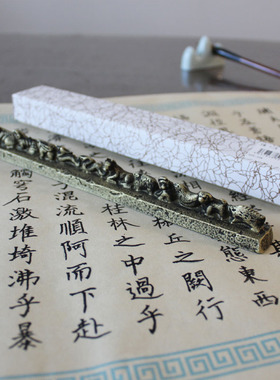 態東西
丘之闕行
桂林之中過乎
乎混流順阿而下赴
觸穹石激堆埼沸乎暴